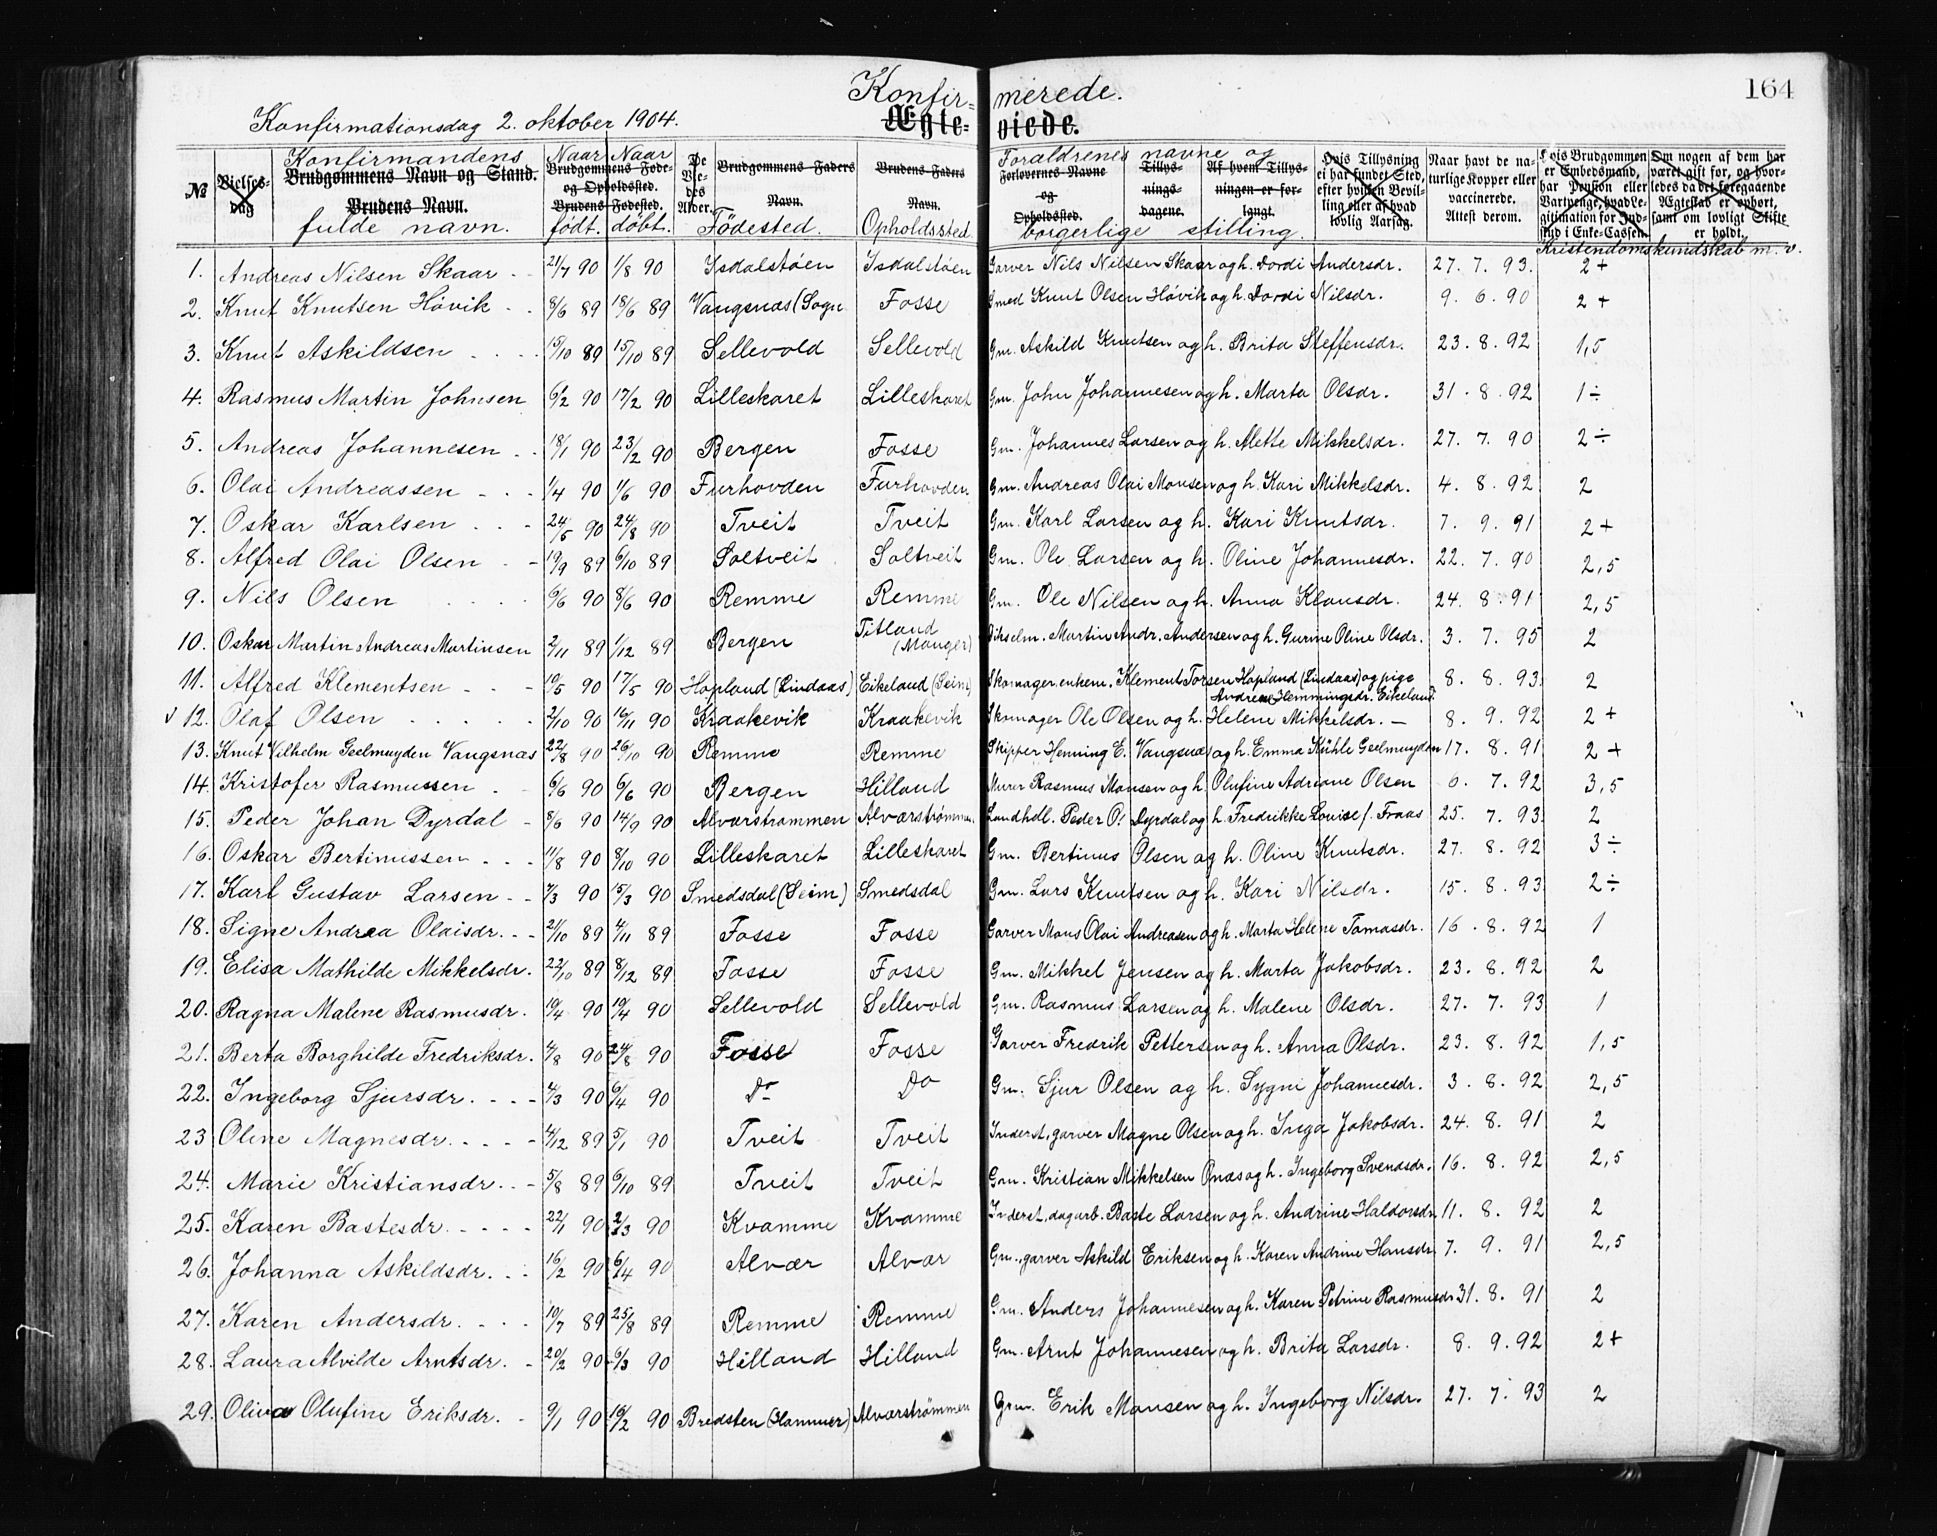 164
Konfirmerede.
Ægteviede.
Konfirmationsdag 2. oktober 1904.
№ Vielsesdag Konfirmandens Brudgommens Navn og Stand. Brudens Navn. fulde navn. Naar født. Naar døbt. Brudgommens Føde- og Opholdssted. Brudens Fødested. De Viedes Alder. Brudgommens Faders Navn. Fødested. Brudens Faders Navn. Opholdssted Forældrenes navne og borgerlige stilling. Forlovernes Navne og Opholdssted. Tillysningsdagene. Af hvem Tillysningen er forlangt. Hvis Tillysning ei har fundet Sted, efter hvilken Bevilling eller af hvad lovlig Aarsag. Naar havt de naturlige Kopper eller vaccinerede. Attest derom. Hvis Brudgommen er Embedsmand, har Pension eller Vartpenge, hvad Legitimation for Indskud i Enke-Cassen. Om nogen af dem har været gift før, og hvorledes da det foregaaende Ægteskab er ophørt, samt om lovligt Skifte er holdt.
Kristendomskundskab m. v.
1. Andreas Nilsen Skaar 21/7 90 1/8 90 Isdalstøen Isdalstøen Garver Nils Nilsen Skaar og h. Dordi Andersdr. 27. 7. 93. 2+
2. Knut Knutsen Høvik 8/6 89 18/6 89 Vangsnas (Sogn Fosse Smed Knut Olsen Høvik og h. Dordi Nilsdr. 9. 6. 90 2+
3. Knut Askildsen 15/10 89 15/10 89 Sellevold Sellevold Gm. Askild Knutsen og h. Brita Steffensdr. 23. 8. 92 1,5
4. Rasmus Martin Johnsen 6/2 90 17/2 90 Lilleskaret Lilleskaret Gm. John Johannesen og h. Marta Olsdr. 31. 8. 92 1÷
5. Andreas Johannesen 18/1 90 23/2 90 Bergen Fosse Gm. Johannes Larsen og h. Mette Mikkelsdr. 27. 7. 90 2÷
6. Olai Andreassen 1/4 90 1/6 90 Furhovden Furhovden Gm. Andreas Olai Monsen og h. Kari Mikkelsdr. 4. 8. 92 2
7. Oskar Karlsen 24/5 90 24/8 90 Tveit Tveit Gm. Karl Larsen og h. Kari Knutsdr. 7. 9. 91 2+
8. Alfred Olai Olsen 19/9 89 6/10 89 Soltveit Soltveit Gm. Ole Larsen og h. Oline Johannesdr. 22. 7. 90 2,5
9. Nils Olsen 6/6 90 8/6 90 Remme Remme Gm. Ole Nilsen og h. Anna Klausdr. 24. 8. 91 2,5
10. Oskar Martin Andreas Martinsen 2/11 89 1/12 89 Bergen Titland (Manger) Martin Andr. Andersen og h. Gurine Oline Olsdr. 3. 7. 95 2
11. Alfred Klementsen 10/5 90 17/5 90 Hopland (Lindaas) Eikeland (Seim) Skomager, enkem. Klement Torsen Hopland (Lindaas) og pige Andrea Hemmingsdr. Eikeland 8. 8. 93 2
12. Olaf Olsen 2/10 90 16/11 90 Kraakevik Kraakevik Skomager Ole Olsen og h. Helene Mikkelsdr. — 8. 9. 92 2+
13. Knut Vilhelm Geelmuyden Vangsnas 22/8 90 26/10 90 Remme Remme Skipper Henning E. Vangsnæs og h. Emma Kühle Geelmuyden 17. 8. 91 2+
14. Kristofer Rasmussen 6/6 90 6/6 90 Bergen Hilland Murer Rasmus Monsen og h. Olufine Adriane Olsen 6. 7. 92 3,5
15. Peder Johan Dyrdal 8/6 90 14/9 90 Alværstrømmen Alværstrømmen Landhdl. Peder O. Dyrdal og h. Fredrikke Louise f. Fraas 25. 7. 93. 2
16. Oskar Bertinussen 11/8 90 8/10 90 Lilleskaret Lilleskaret Gm. Bertinus Olsen og h. Oline Knutsdr. 27. 8. 92 3÷
17. Karl Gustav Larsen 7/3 90 15/3 90 Smedsdal (Seim) Smedsdal Gm. Lars Knutsen og h. Kari Nilsdr. 15. 8. 93 2÷
18. Signe Andrea Olaisdr. 21/10 89 4/11 89 Fosse Fosse Garver Mons Olai Andreasen og h. Marta Helene Tomasdr. 16. 8. 92 1
19. Elisa Mathilde Mikkelsdr. 22/10 89 8/12 89 Fosse Fosse Gm. Mikkel Jensen og h. Marta Jakobsdr. 23. 8. 92 2
20. Ragna Malene Rasmusdr. 10/4 90 19/4 90 Sellevold Sellevold Gm. Rasmus Larsen og h. Malene Olsdr. 27. 7. 93 1
21. Berta Borghilde Fredriksdr. 4/8 90 24/8 90 Fosse Fosse Garver Fredrik Pettersen og h. Anna Olsdr. 23. 8. 92 1,5
22. Ingeborg Sjursdr. 4/3 90 6/4 90 Do Do Gm. Sjur Olsen og h. Sygni Johannesdr. 3. 8. 92 2,5
23 Oline Magnesdr. 4/12 89 5/1 90 Tveit Tveit Inderst, garver Magne Olsen og h. Inga Jakobsdr. 24. 8. 91 2
24. Marie Kristiansdr. 5/8 89 6/10 89 Tveit Tveit Gm. Kristian Mikkelsen Onæs og h. Ingeborg Svendsdr. 16. 8. 92 2,5
25. Karen Bastesdr. 22/1 90 2/3 90 Kvamme Kvamme Inderst, dagarb. Baste Larsen og h. Andrine Haldorsdr. 11. 8. 92 2
26. Johanna Askildsdr. 16/2 90 6/4 90 Alvær Alvær Gm., garver Askild Eriksen og h. Karen Andrine Hansdr. 7. 9. 91 2,5
27. Karen Andersdr. 10/7 89 25/8 89 Remme Remme Gm. Anders Johannesen og h. Karen Petrine Rasmusdr 31. 8. 91 2
28. Laura Alvilde Arntsdr. 20/2 90 6/3 90 Hilland Hilland Gm. Arnt Johannesen og h. Brita Larsdr. 8. 9. 92 2+
29. Oliva Olufine Eriksdr. 9/1 90 16/2 90 Bredsten (Hammer) Alværstrømmen Grm. Erik Monsen og h. Ingeborg Nilsdr. 27. 7. 93 2